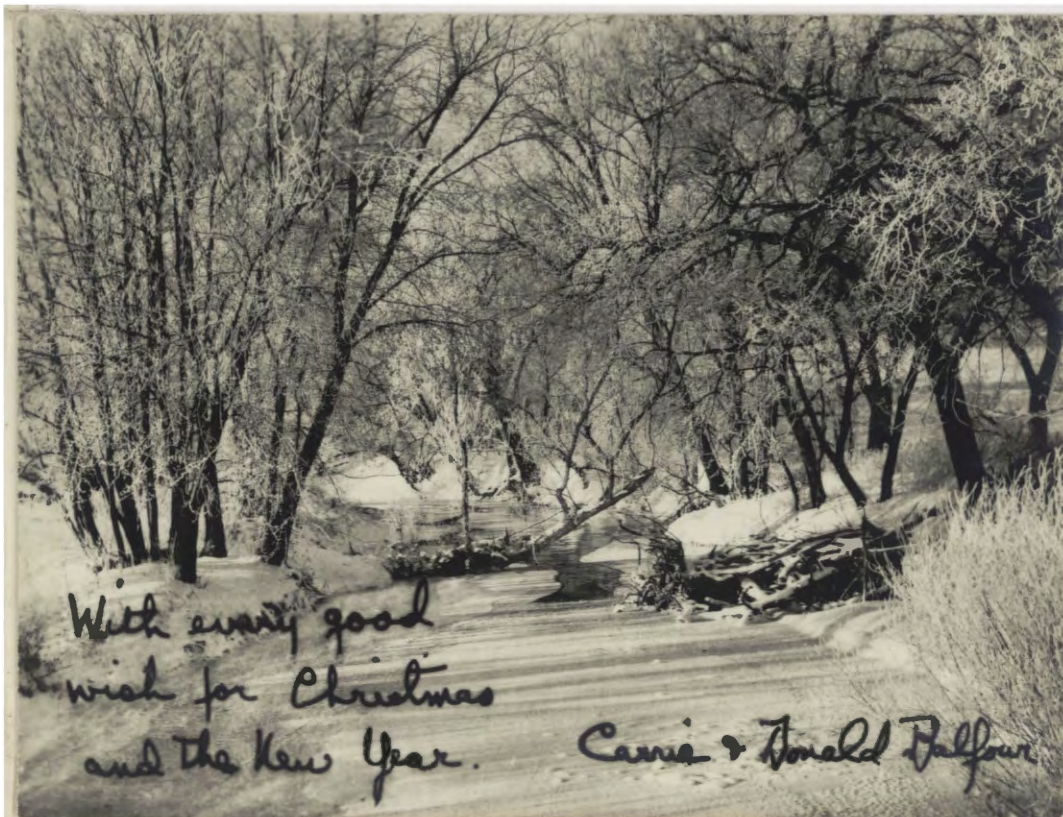 With every good
wish for Christmas
and the New Year.
Carrie & Donald Balfour